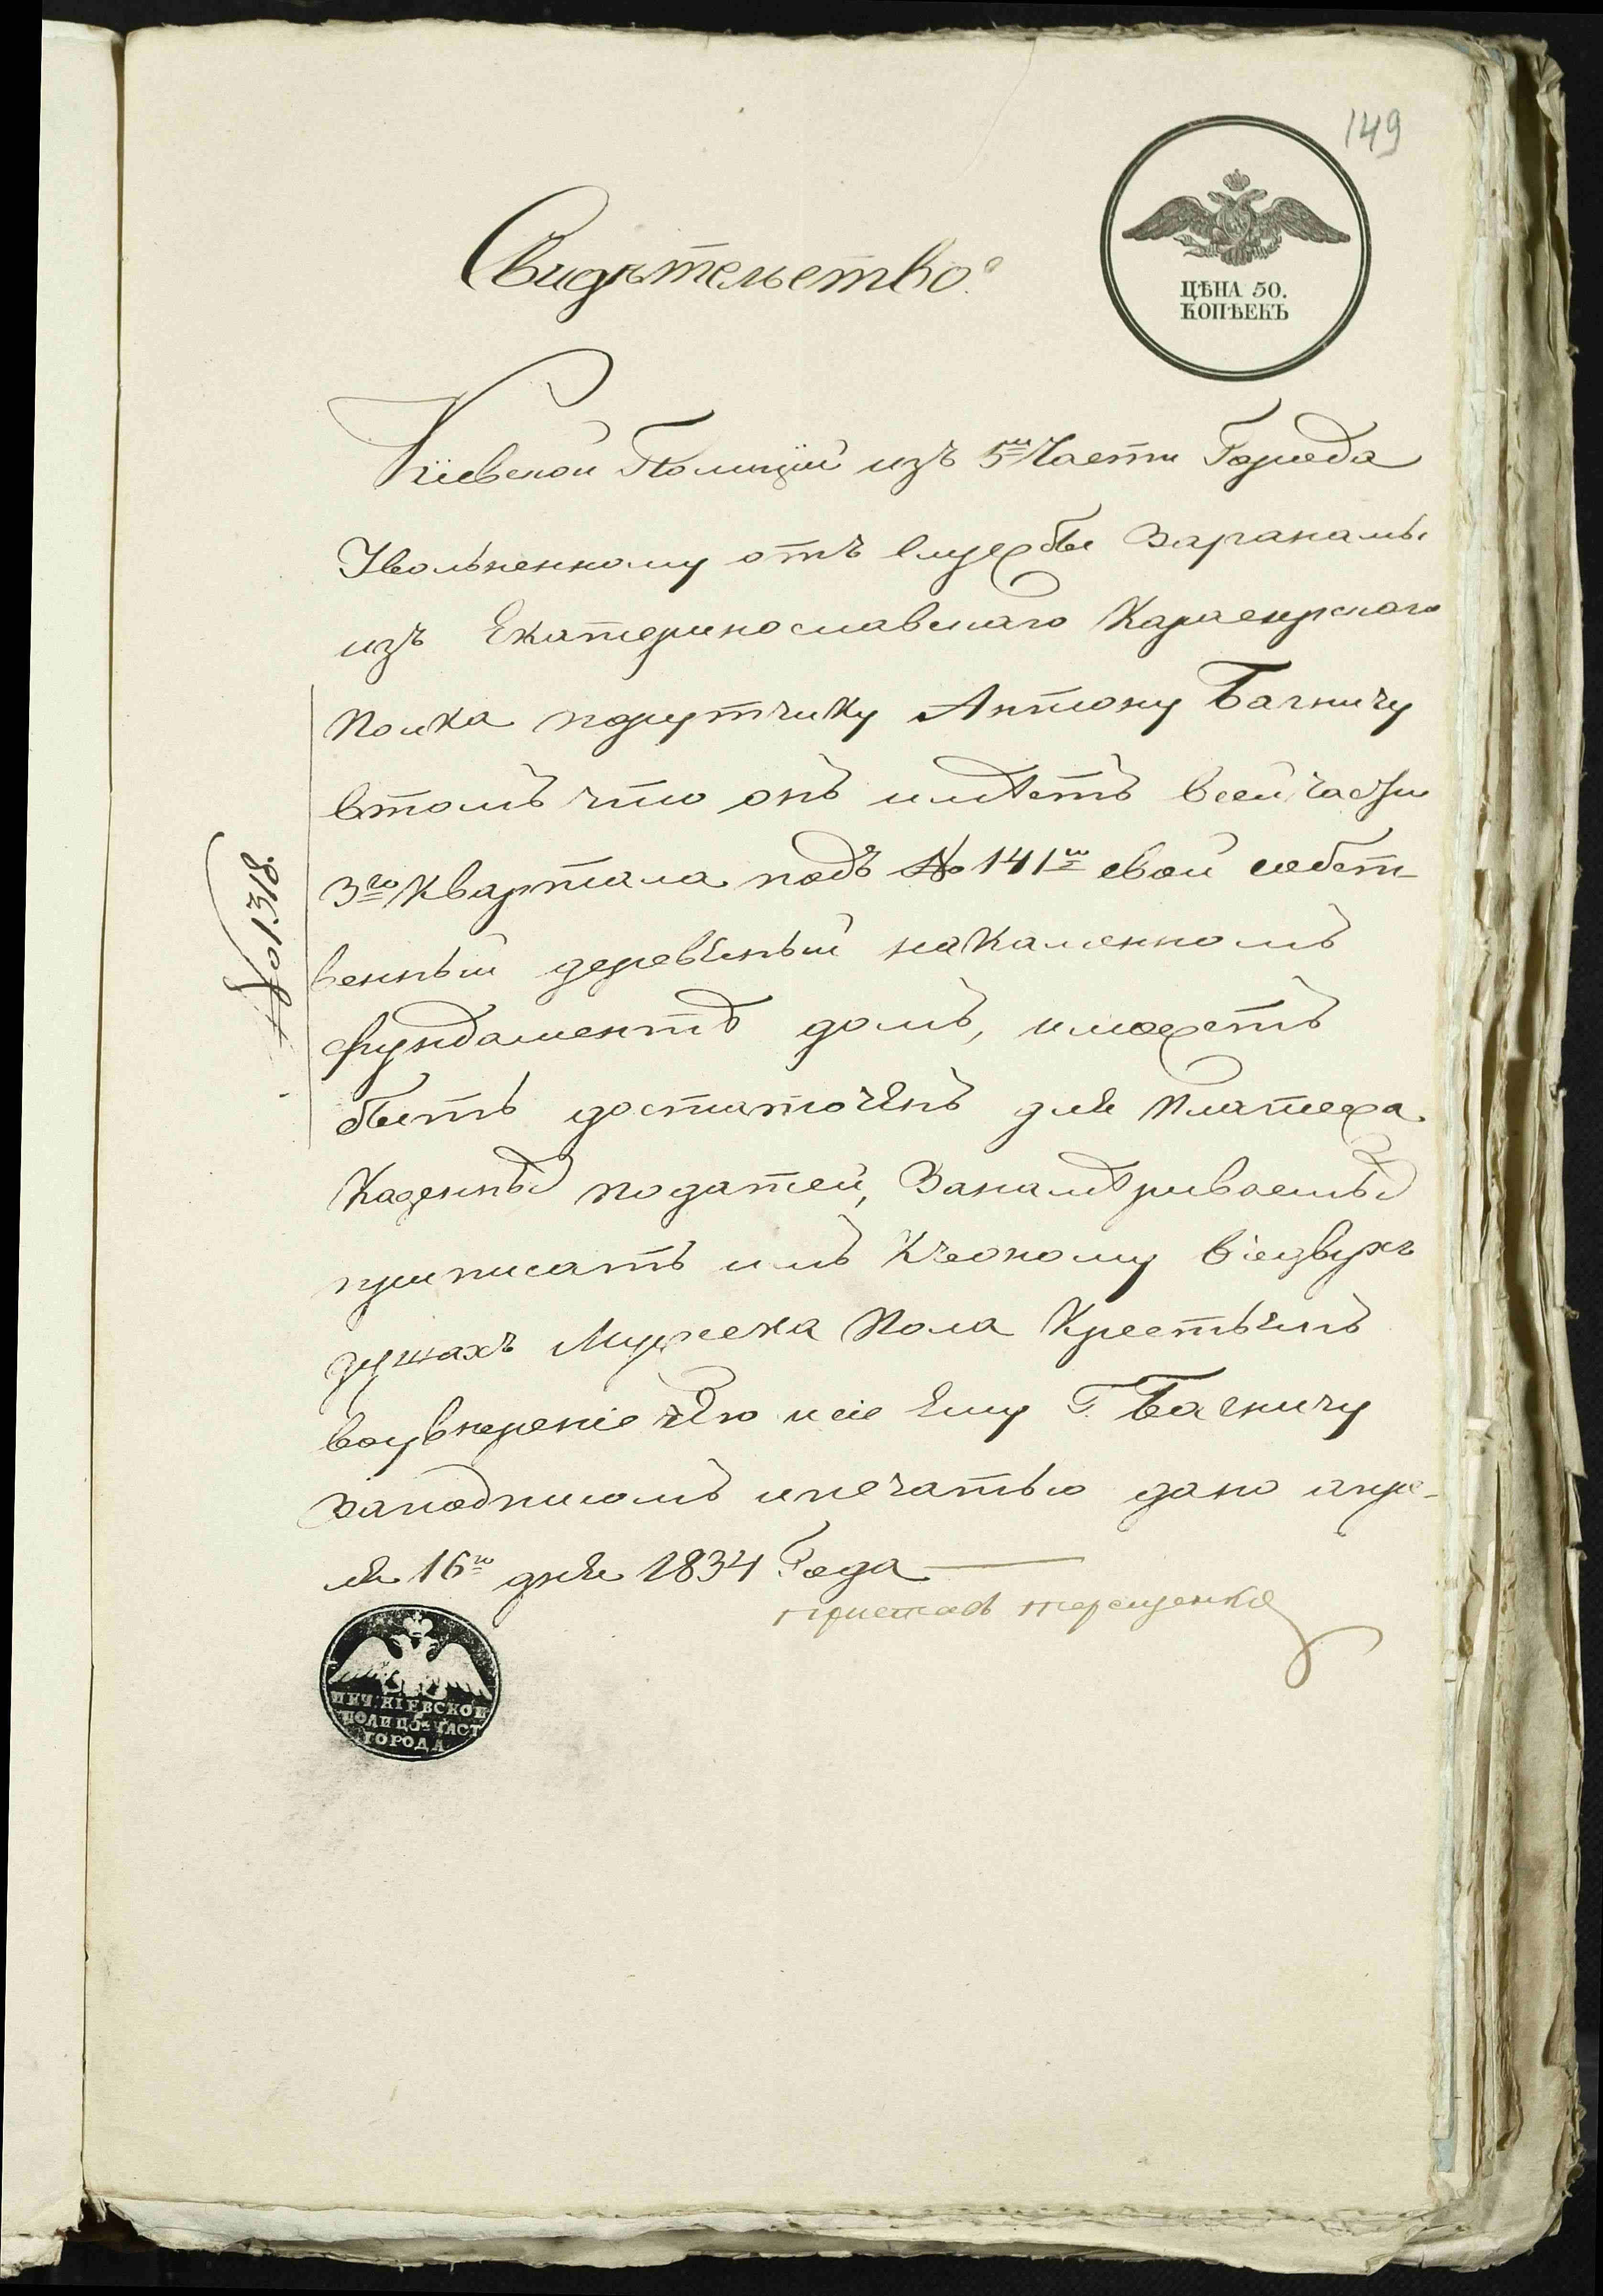 149
ЦѢНА 50.
КОПѢЕКЪ
Свидѣтельство.
Кіевской Полиціи изъ 5й Части Города
Уволненному отъ службы За ранамы
изъ Екатеринославскаго Кирасирскаго
полка порутчику Антону Багничу
втомъ что онъ имѣетъ всей части
3го квартала подъ № 141м свой собст-
венный деревяный накаменномъ
фундаментѣ домъ, иможетъ
быть достаточенъ для платежа
Казенныхъ податей, Занамѣриваемыхъ
приписать имъ къ оному
душахъ Мужеска пола Крестьянъ
воувѣреніе чего исіе Ему Г. Багничу
заподписомъ ипечатью дано апре-
ля 16го дня 1834 Года
приставъ терещенко
№ 1318.
ПЕЧ. КІЕВСКОЙ
ПОЛИЦ. 5й ЧАСТ
ГОРОДА